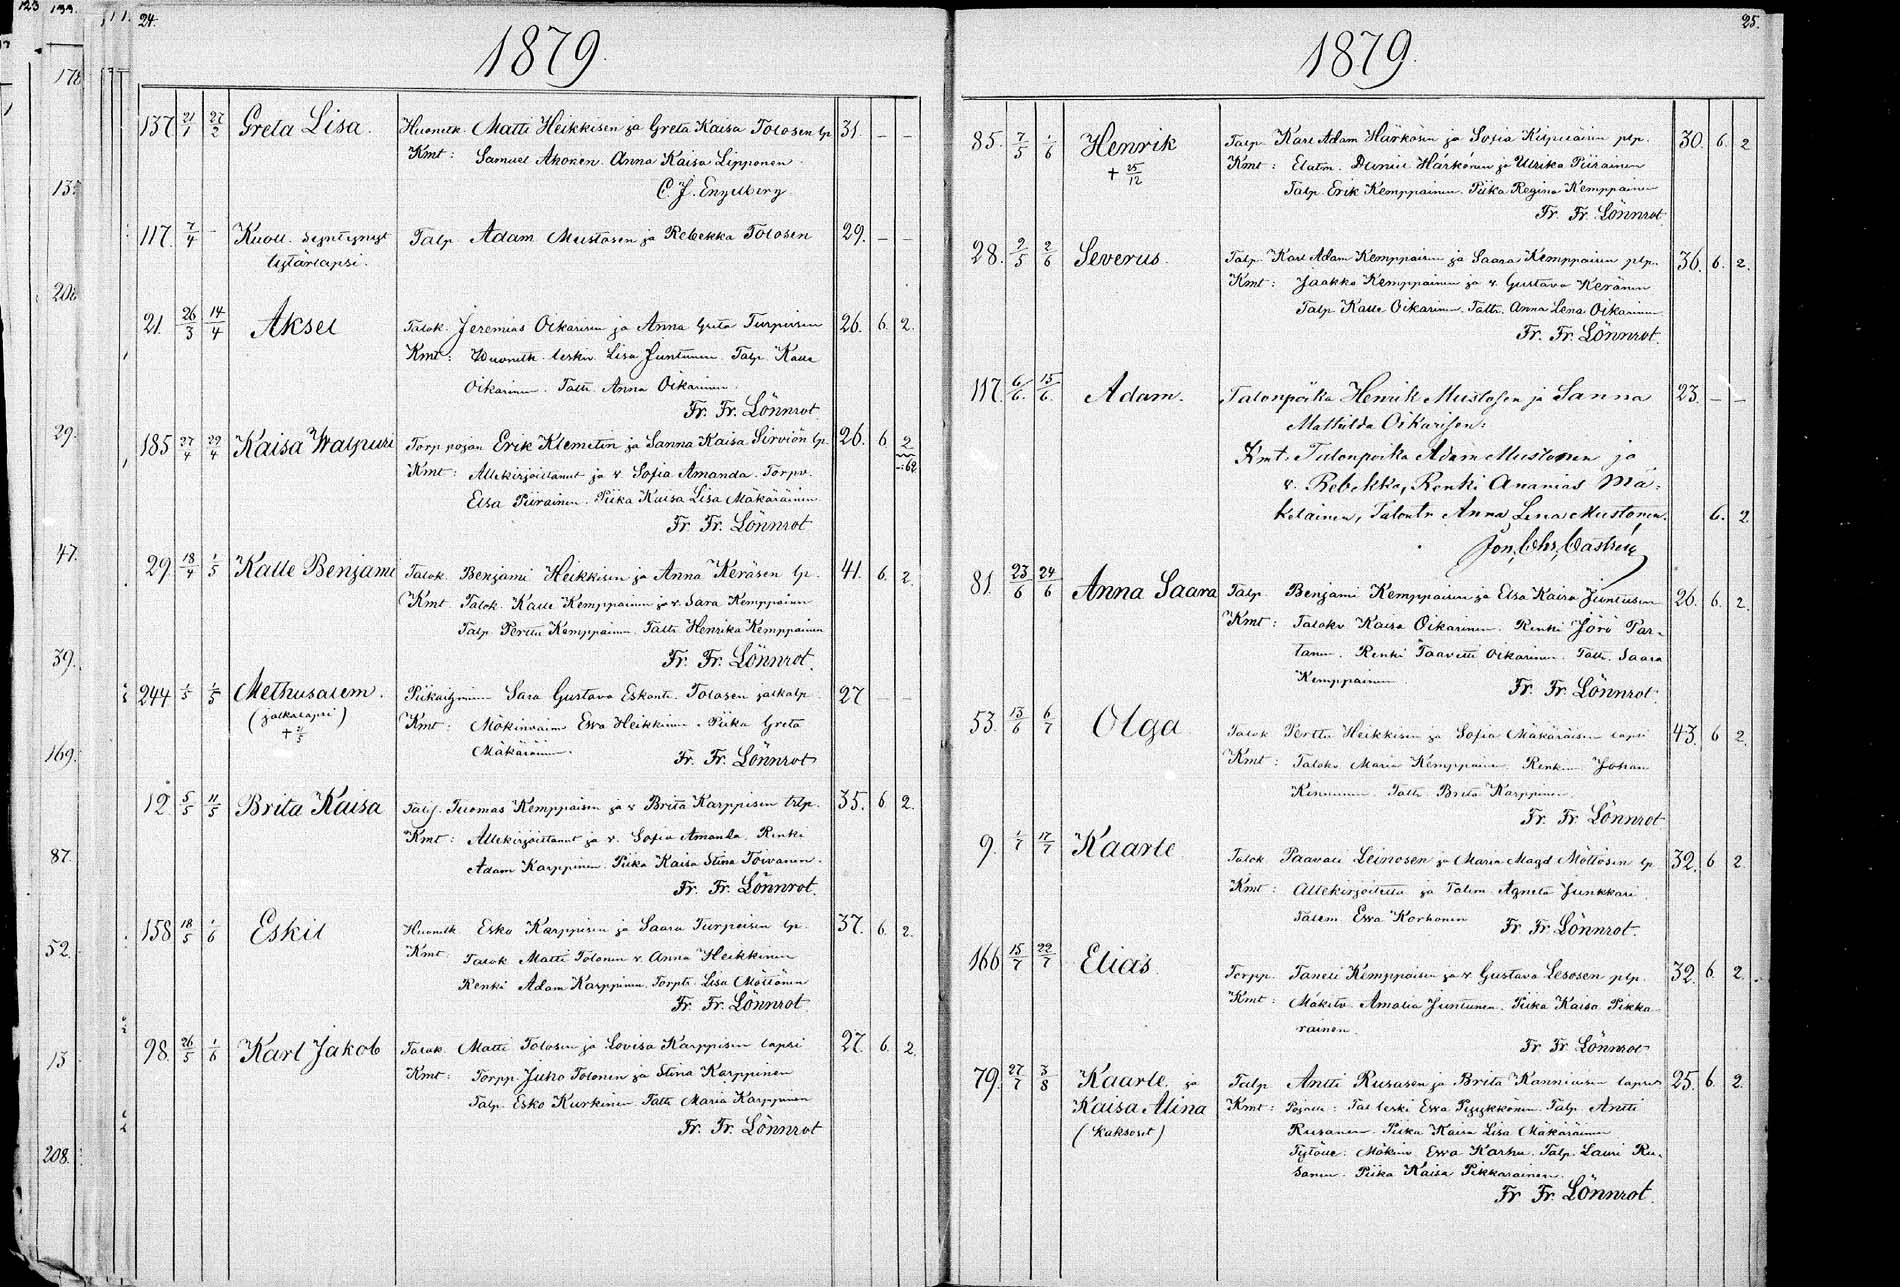 24.
1879.
137 21/1 27/2 Greta Lisa. Huonetk. Matti Heikkisen ja Greta Kaisa Tolosen lp 31. — —
Kmt: Samuel Ahonen. Anna Kaisa Lipponen.
C. J. Engelberg.
117. 7/4 — Kuoll. syntynyt Talp Adam Mustosen ja Rebekka Tolosen 29. — —
tytärlapsi.
21. 26/3 14/4 Aksel Talok. Jeremias Oikarisen ja Anna Greta Turpeisen 26. 6. 2.
Kmt: Huonetk. leskiv. Lisa Juntunen. Talp. Kalle
Oikarinen. Taltt. Anna Oikarinen.
Fr. Fr. Lönnrot
185 27/4 29/4 Kaisa Walpuri Torp. pojan Erik Klemetin ja Sanna Kaisa Sirviön lp. 26. 6 2
Kmt: Allekirjoittanut ja v. Sofia Amanda. Torpv. 62.
Elsa Piirainen. Piika Kaisa Lisa Mäkäräinen
Fr. Fr. Lönnrot
29. 18/4 1/5 Kalle Benjami Talok. Benjami Heikkisen ja Anna Keräsen lp. 41. 6. 2.
Kmt Talok. Kalle Kemppainen ja v. Sara Kemppainen
Talp. Perttu Kemppainen. Taltt. Henrika Kemppainen
Fr. Fr. Lönnrot.
244 1/5 1/5 Methusalem. Piikaihminen Sara Gustava Eskont. Tolosen jalkalp 27 — —
(jalkalapsi) Kmt: Mökinvaimo Ewa Heikkinen. Piika Greta
+ 2/5 Mäkäräinen.
Fr. Fr. Lönnrot
12. 5/5 11/5 Brita Kaisa Talp. Tuomas Kemppaisen ja v Brita Karppisen trlp. 35. 6 2.
Kmt: Allekirjoittanut ja v. Sofia Amanda. Renki
Adam Karppinen. Piika Kaisa Stina Toivanen.
Fr. Fr. Lönnrot.
158 18/5 1/6 Eskil Huonetk Esko Karppisen ja Saara Turpeisen lp. 37. 6. 2.
Kmt. Talok Matti Tolonen v. Anna Heikkinen
Renki Adam Karppinen. Torptr. Lisa Möttönen
Fr. Fr. Lönnrot.
98. 26/5 1/6 Karl Jakob Talok. Matti Tolosen ja Lovisa Karppisen lapsi 27. 6. 2.
Kmt: Torpp. Juho Tolonen ja Stina Karppinen
Talp. Esko Kurkinen. Taltt Maria Karppinen
Fr. Fr. Lönnrot
25.
1879.
85. 7/5 1/6 Henrik Talp. Karl Adam Härkösen ja Sofia Kilpeläisen plp. 30. 6. 2
+ 25/12 Kmt: Elatm. Daniel Härkönen ja Ulrika Piirainen
Talp Erik Kemppainen. Piika Regina Kemppainen
Fr. Fr. Lönnrot.
28. 2/5 2/6 Severus. Talp. Karl Adam Kemppaisen ja Saara Kemppaisen plp. 36. 6. 2.
Kmt: Jaakko Kemppainen ja v. Gustava Keränen
Talp Kalle Oikarinen. Taltt. Anna Lena Oikarinen
Fr. Fr. Lönnrot.
117. 6/6. 15/6. Adam. Talonpoika Henrik Mustosen ja Sanna 23. — —
Mathilda Oikarisen:
Kmt. Talonpoika Adam Mustonen ja
v. Rebekka, Renki Ananias Mä-
keläinen, Talontr Anna Lena Mustonen. 6. 2
Jon, Chr, Castrén,
81. 23/6 24/6 Anna Saara Talp. Benjami Kemppaisen ja Elsa Kaisa Juntusen 26. 6. 2.
Kmt: Talokv Kaisa Oikarinen. Renki Jörö Par-
tanen. Renki Taavetti Oikarinen. Taltt. Saara
Kemppainen.
Fr. Fr. Lönnrot.
53. 13/6 6/7 Olga Talok Perttu Heikkisen ja Sofia Mäkäräisen lapsi 43. 6 2.
Kmt: Talokv Maria Kemppainen. Renki Johan
Kinnunen. Taltt Brita Karppinen.
Fr. Fr. Lönnrot
9. 1/7 17/7 Kaarle Talok Paavali Leinosen ja Maria Magd Möttösen lp. 32. 6 2.
Kmt: Allekirjoittanut ja Talem. Agneta Junkkari.
Talem. Ewa Korhonen
Fr. Fr. Lönnrot.
166 15/7 22/7 Elias. Torpp. Taneli Kemppaisen ja v Gustava Lesosen plp. 32. 6. 2.
Kmt: Mökitv Amalia Juntunen. Piika Kaisa Pikka-
rainen.
Fr. Fr. Lönnrot
79. 27/7 3/8 Kaarle ja Talp Antti Rusasen ja Brita Kanniaisen lapset 25. 6. 2.
Kaisa Alina Kmt: Pojalle: Tal leski Ewa Pyykkönen. Talp Antti
(kaksoset) Rusanen. Piika Kaisa Lisa Mäkäräinen
Tytölle: Mökinv. Ewa Karhu. Talp. Lauri Ru-
sanen. Piika Kaisa Pikkarainen.
Fr. Fr. Lönnrot.
123
199.
178
135
208
29.
47.
39.
169.
87.
52.
13
208.